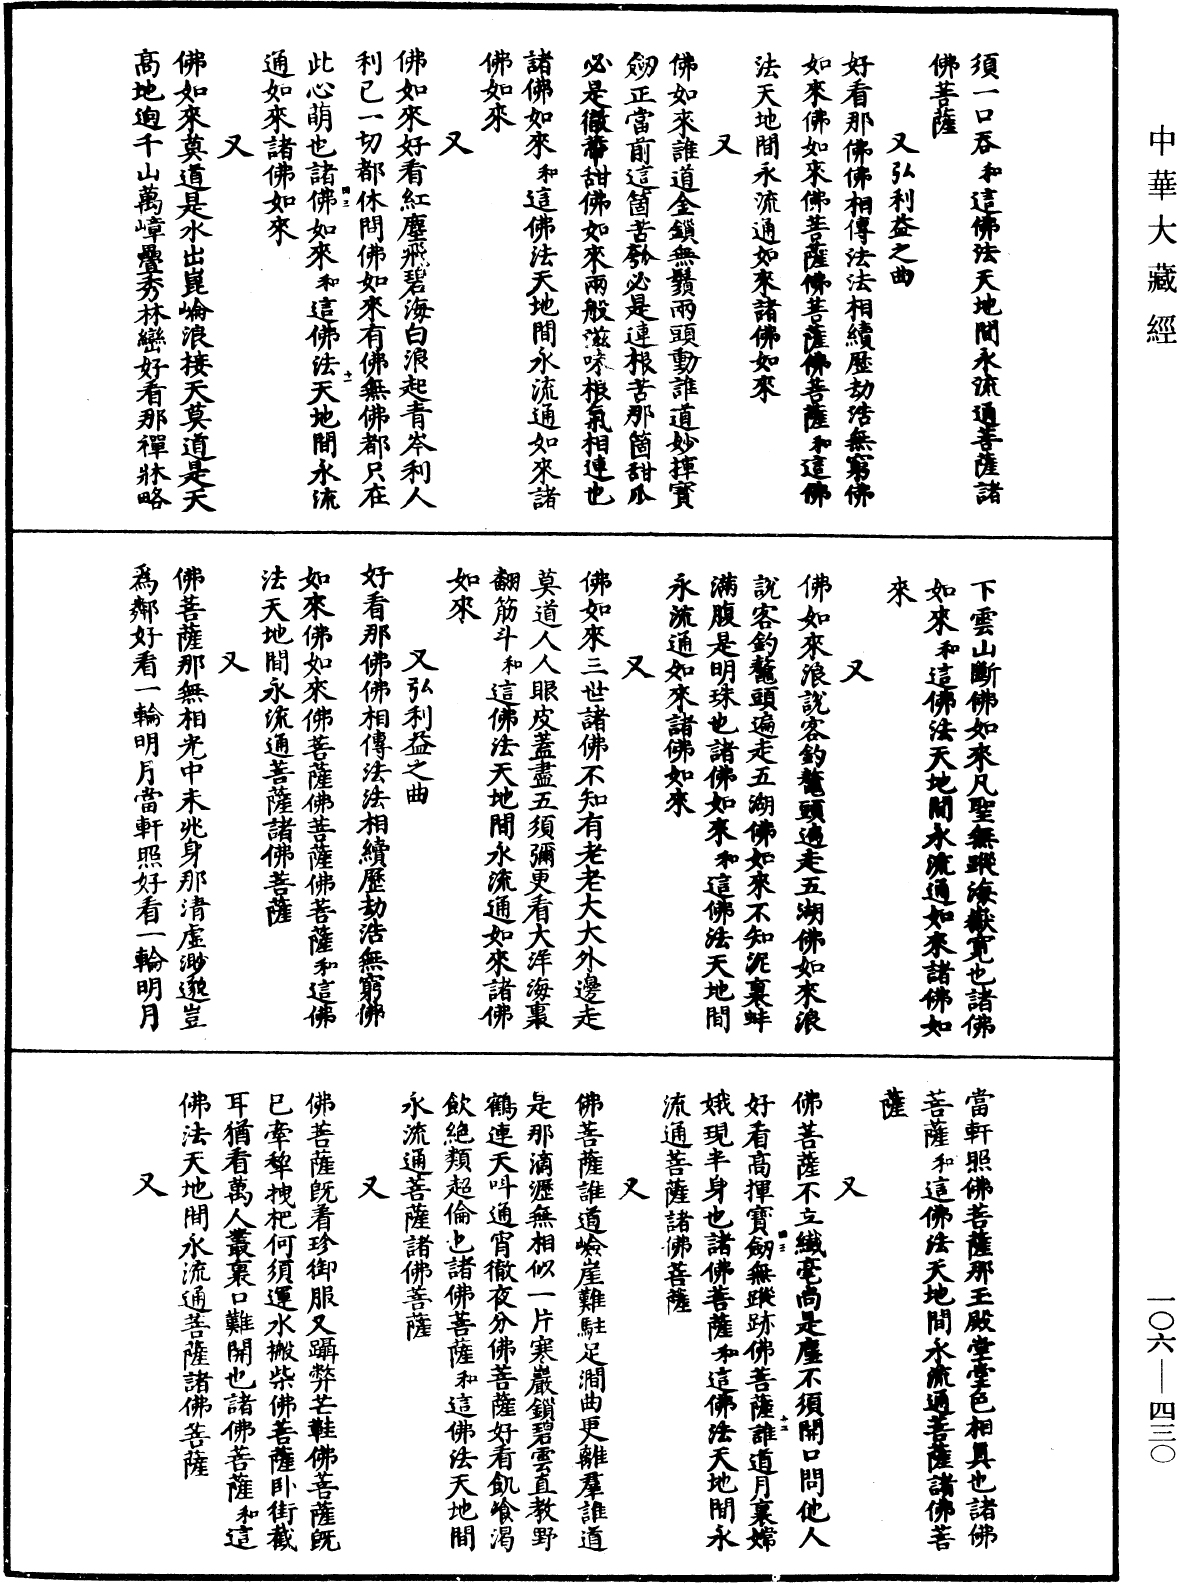 中華大藏經
須一口吞和這佛法天地間永流通菩薩諸
佛菩薩
又弘利益之曲
好看那佛佛相傳法法相續歷劫浩無窮佛
如來佛如來佛菩薩佛菩薩佛菩薩和這佛
法天地間永流通如來諸佛如來
又
佛如來誰道金鎖無鬚兩頭動誰道妙揮寶
劒正當前這箇苦瓠必是連根苦那箇甜瓜
必是徹蒂甜佛如來兩般滋味根氣相連也
諸佛如來和這佛法天地間永流通如來諸
佛如來
又
佛如來好看紅塵飛碧海白浪起青岑利人
利已一切都休問佛如來有佛無佛都只在
此心萌也諸佛如來和這佛法天地間永流
通如來諸佛如來
又
佛如來莫道是水出崑崘浪接天莫道是天
高地逈千山萬嶂疊秀林巒好看那禪牀略
下雲山斷佛如來凡聖無蹤海嶽寬也諸佛
如來和這佛法天地間永流通如來諸佛如
來
又
佛如來浪說客釣鼇頭遍走五湖佛如來浪
說客釣鼇頭遍走五湖佛如來不知泥裏蚌
滿腹是明珠也諸佛如來和這佛法天地間
永流通如來諸佛如來
又
佛如來三世諸佛不知有老老大大外邊走
莫道人人眼皮蓋盡五須彌更看大洋海裏
翻筋斗和這佛法天地間永流通如來諸佛
如來
又弘利益之曲
好看那佛佛相傳法法相續歷劫浩無窮佛
如來佛如來佛菩薩佛菩薩佛菩薩和這佛
法天地間永流通菩薩諸佛菩薩
又
佛菩薩那無相光中未兆身那清虛渺邈豈
爲鄰好看一輪明月當軒照好看一輪明月
當軒照佛菩薩那王殿堂堂色相具也諸佛
菩薩和這佛法天地間永流通菩薩諸佛菩
薩
又
佛菩薩不立纖毫尚是塵不須開口問他人
好看高揮寶劒無蹤跡佛菩薩誰道月裏嫦
娥現半身也諸佛菩薩和這佛法天地間永
流通菩薩諸佛菩薩
又
佛菩薩誰道嶮崖難駐足澗曲更離羣誰道
是那滴瀝無相似一片寒巖鎖碧雲直教野
鶴連天呌通宵徹夜分佛菩薩好看飢飡渴
飲絶類超倫也諸佛菩薩和這佛法天地間
永流通菩薩諸佛菩薩
又
佛菩薩旣着珍御服又躡弊芒鞋佛菩薩旣
已牽犂拽杷何須運水搬柴佛菩薩卧街截
耳猶看萬人叢裏口難開也諸佛菩薩和這
佛法天地間永流通菩薩諸佛菩薩
又
一〇六—四三〇